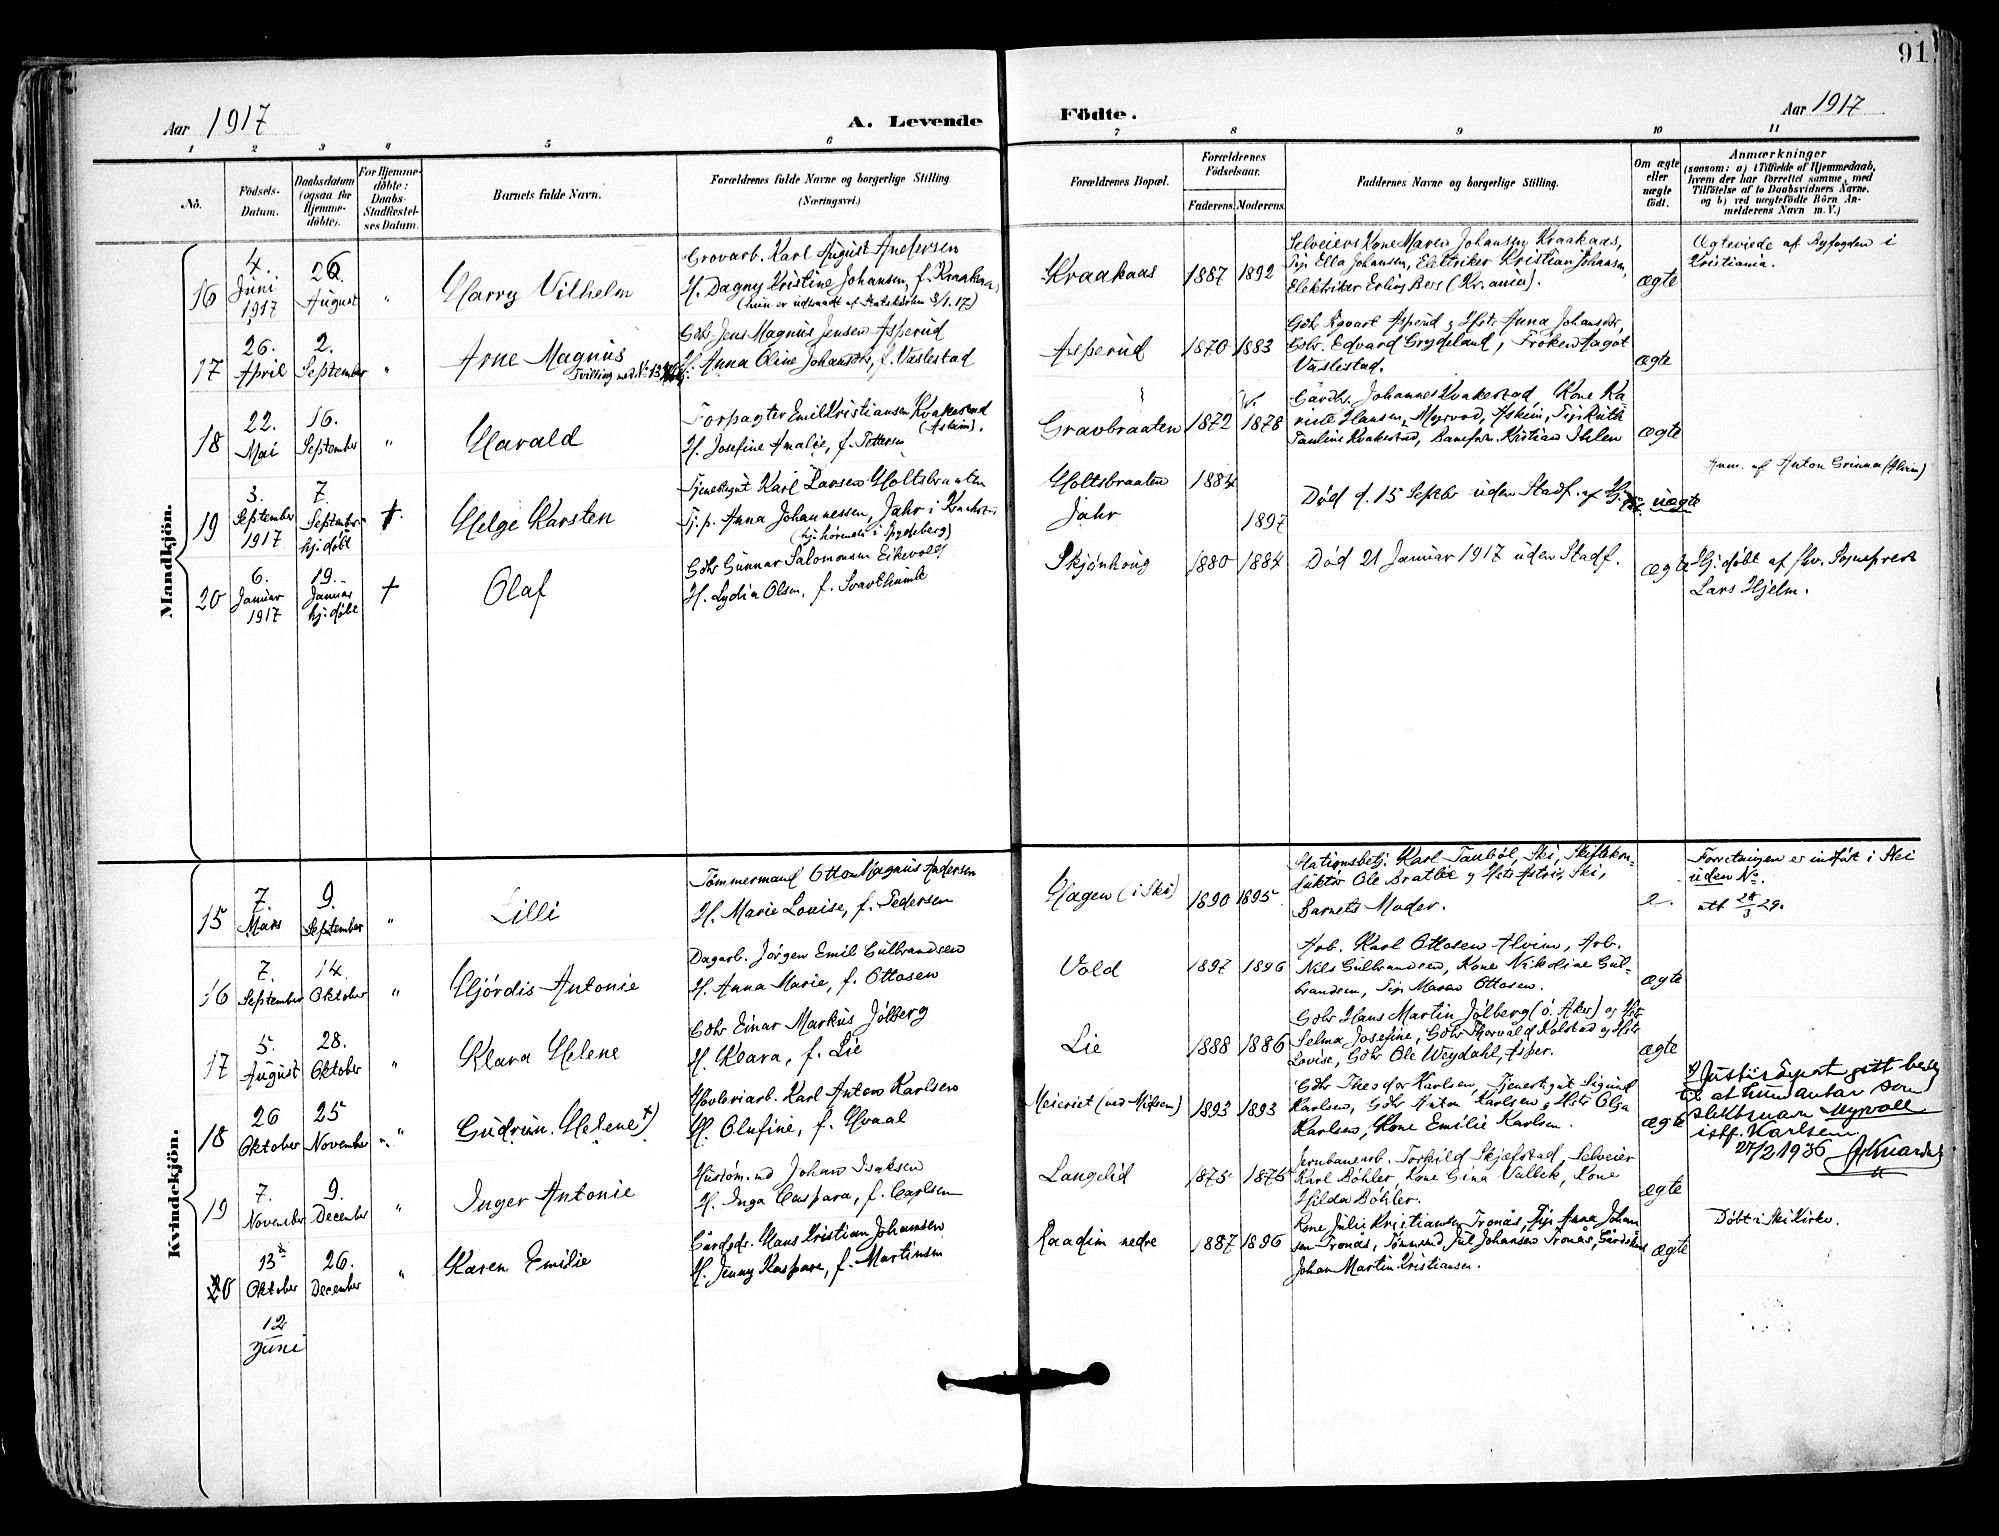 91.
Aar 1917
A. Levende
Födte.
Aar 1917
1 2 3 4 5 6 7 8 9 10 11
No.
Födsels-
Datum.
Daabsdatum
(ogsaa for
Hjemme-
döbte).
For Hjemme-
döbte:
Daabs-
Stadfæstel-
ses Datum.
Barnets fulde Navn.
Forældrenes fulde Navne og borgerlige Stilling
(Næringsvei.)
Forældrenes Bopæl.
Forældrenes
Födselsaar.
Faderens. Moderens.
Faddernes Navne og borgerlige Stilling.
Om ægte
eller
uægte
födt.
Anmærkninger
(saasom: a) i Tilfælde af Hjemmedaab,
hvem der har forrettet samme, med
Tilföielse af to Daabsvidners Navne.
og b) ved uægtefödte Börn An-
melderens Navn m. V.)
Mandkjön.
16
4.
Juni
1917
26.
August
"
Harry Vilhelm
Grovarb. Karl August Andersen
H. Dagny Kristine Johansen, f. Kraakaas
(hun er udmeldt af Statskirken 3/1.17)
Kraakaas
1887 1892
Selveiers Kone Maren Johansen Kraakaas,
Pige Ella Johansen, Elektriker Kristian Johansen,
Elektriker Erling Berg (Kr.ania).
ægte
Ægteviede af Byfogden i
Kristiania.
17
26.
April
2.
September
"
Arne Magnus
Tvilling med No 13
Gbr. Jens Magnus Jensen Asperud
H. Anna Oline Johansdtr, f. Vaslestad
Asperud
1870 1883
Gbr. Asperud & Hstr Anna Johansdtr,
Gbr. Edvard Grydeland, Frøken Aagot
Vaslestad.
ægte
18
22.
Mai
16.
September
"
Harald
Forpagter Emil Kristiansen Kvakestad
(Askim).
H. Josefine Amalie, f. Pettersen
Gravbraaten
1872 1878
Gårdbr. Johannes Kvakestad, Kone Ka
rine Hansen, Myrvod, Askim, Pige Ruth
Pauline Kvakestad, Kristian Ihlen
ægte
19
3.
September
1917
7.
September
hj. døbt
†
Helge Karsten
Tjenestegut Karl Larsen Holtsbraaten
Tj.p. Anna Johannessen, Jahr i
(hj.hørende i Spydeberg)
Holtsbraaten
Jahr
1884
1897
Død d. 15 Septbr uden Stadf. af Hj.
uægte
Anm. af Anton
20
6.
Januar
1917
19.
Januar
hj. døbt
†
Olaf
Gbr Gunnar Salomonsen Eikevold
H. Lydia Olsen, f. Svarthumle
Skjønhoug
1880 1884
Død 21 Januar 1917 uden Stadf.
ægte
Hj. døbt af Sogneprest
Lars Hjelm.
Kvindekjön.
15
7.
Mars
9.
September
"
Lilli
Tømmermand Otto Magnus Andersen
H. Marie Louise, f. Pedersen
Hagen (i Ski)
1890 1895
Stationsbetj. Karl Taubøl, Ski, Skiftekon-
duktør Ole Bratlie & Hstr Astrid, Ski,
Barnets Moder.
e.
Forretningen er indført i Ski
uden No.
att 28/3 29.
16
7.
September
14.
Oktober
"
Hjørdis Antonie
Dagarb. Jørgen Emil Gulbrandsen
H. Anna Marie, f. Ottosen
Vold
1897 1896
Arb. Karl Ottosen Alvim, Arb.
Nils Gulbrandsen, Kone Nikoline Gul-
brandsen, Pige Maren Ottosen.
ægte
17
5.
August
28.
Oktober
"
Klara Helene
Gbr Einar Markus Jølberg
H. Klara, f. Lie
Lie
1888 1886
Gbr Hans Martin Jølberg (ø. Aker) og Hstr
Selma Josefine, Gbr Thorvald Kolstad og Hstr
Lovise, Gbr Ole Weydahl, Asper.
ægte
18
26
Oktober
25
November
"
Gudrun Helene x)
Høvleriarb. Karl Anton Karlsen
H. Olufine, f. Hvaal
Meieriet (ved Mjösen)
1893 1893
Gbr Theodor Karlsen, Tjenestegut Sigurd
Karlsen, Gbr Anton Karlsen & Hstr Olga
Karlsen, Kone Emilie Karlsen.
ægte
x) Justisdepart. gitt bevilg
til at hun antar som
slektsnavn Myrvoll
istf. Karlsen.
27/2 1936
19
7.
November
9.
December
"
Inger Antonie
Hustøm.md Johan Isaksen
H. Inga Caspara, f. Carlsen
Langelid
1875 1875
Jernbanearb. Torkild Skjæfstad, Selveier
Karl Bøhler, Kone Gina Vallek, Kone
Hilda Bøhler.
ægte
20
13
Oktober
26.
December
"
Karen Emilie
Gårdgdr. Hans Kristian Johansen
H. Jenny Kaspara, f. Martinsen
Raadim nedre
1887 1896
Kone Julie Kristiansen Tronås, Pige Anna Johan
sen Tronås, Tømmmd Jul Johansen Tronås, Gårdskar
Johan Martin Kristiansen.
ægte
Døbt i Ski Kirke.
12
Juni